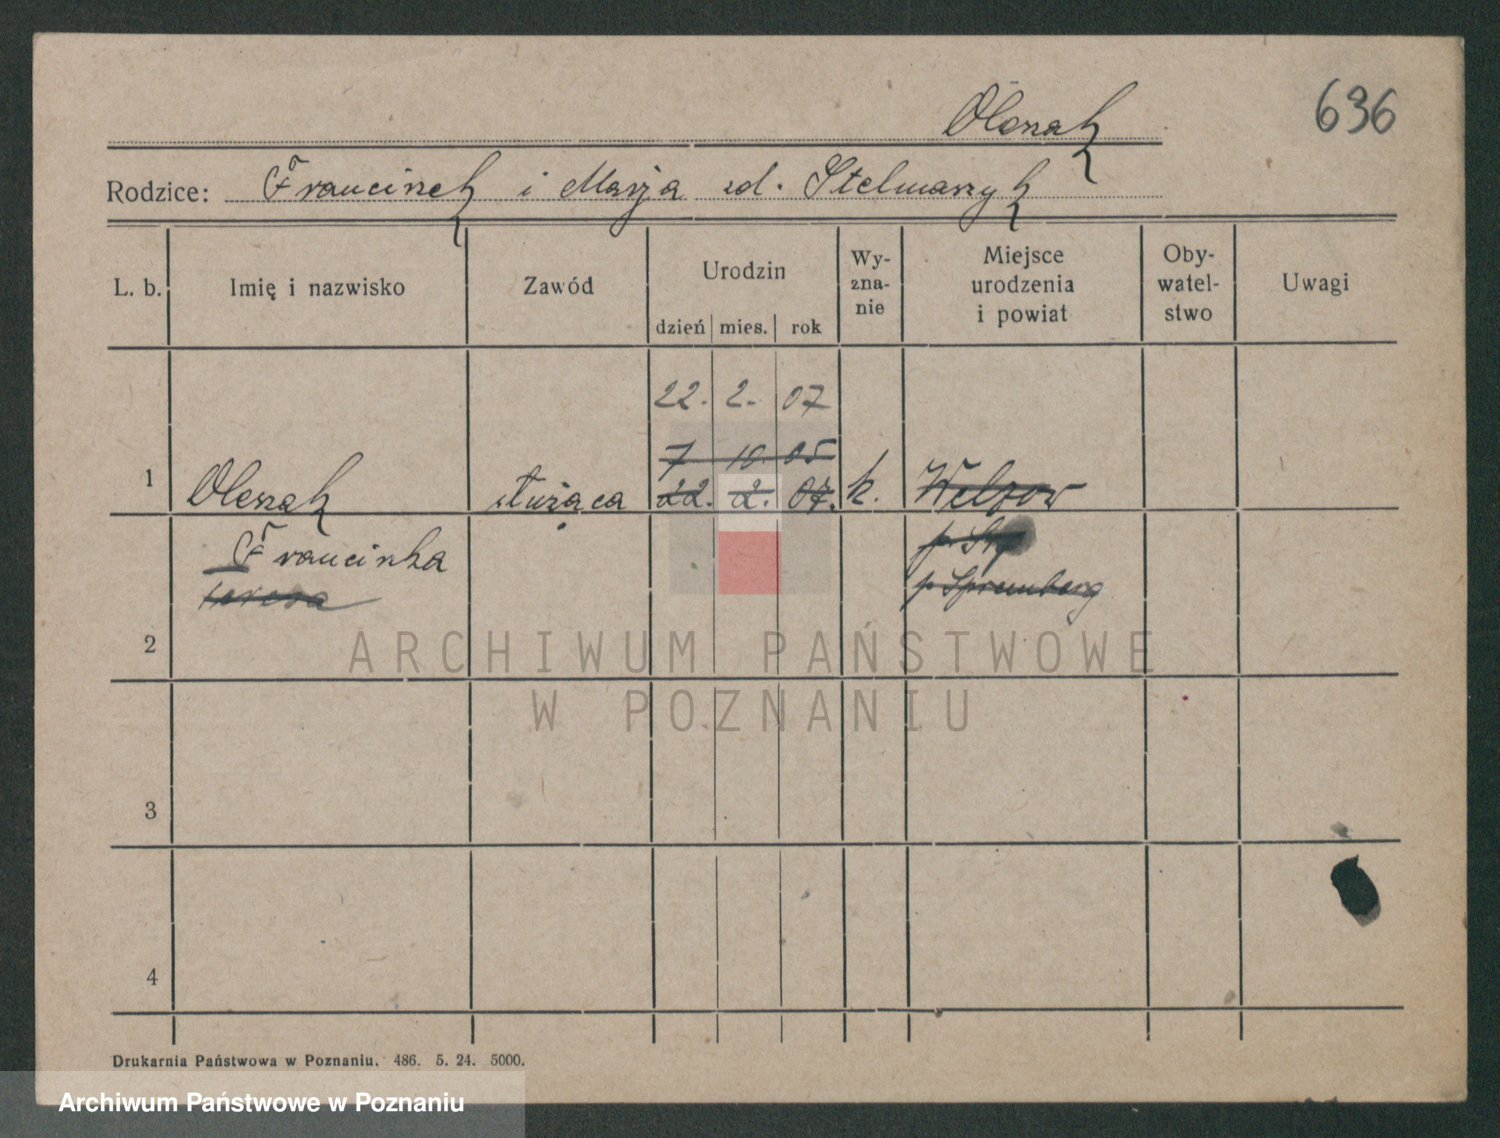 Olszak
636
Rodzice: Franciszek i Marja zd. Stelmaszyk
L. b. Imię i nazwisko Zawód Urodzin dzień mies. rok Wy-zna-nie Miejsce urodzenia i powiat Oby-watel-stwo Uwagi
22. 2. 07
7 10. 05
1 Olszak służąca 22. 2. 07. k. Welzow
Franciszka
teresa p. Spremberg
2
ARCHIWUM PAŃSTWOWE
W POZNANIU
3
4
Drukarnia Państwowa w Poznaniu. 486. 5. 24. 5000.
Archiwum Państwowe w Poznaniu